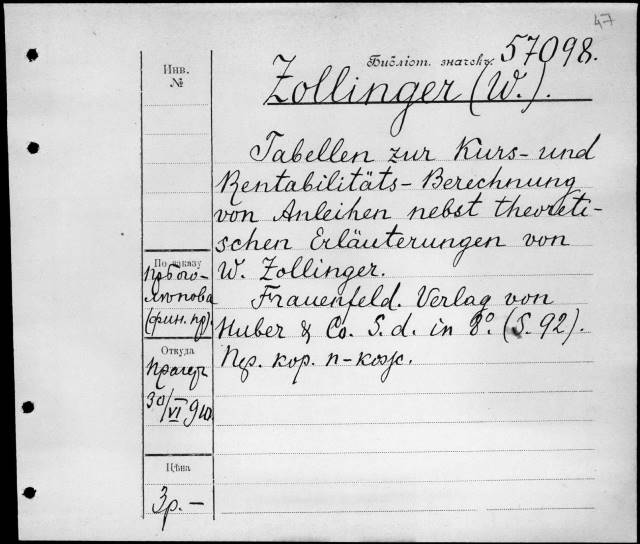 47
Библіот. значекъ 57098.
Инв.
№
Zollinger (W.).
Tabellen zur Kurs- und
Rentabilitäts-Berechnung
von Anleihen nebst theoreti-
schen Erläuterungen von
W. Zollinger.
Frauenfeld. Verlag von
Huber & Co. S. d. in 8º. (S. 92).
кор. п-кож.
По заказу
пр Бого-
лѣпова
(фин. пр).
Откуда
Прагеръ
30/VI 910.
Цѣна
3р. —